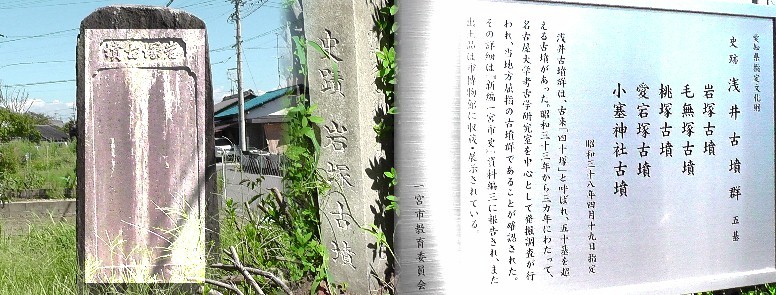 史蹟 岩塚古墳
愛知県指定文化財
史跡 浅井古墳群 五基
岩塚古墳
毛無塚古墳
桃塚古墳
愛宕塚古墳
小塞神社古墳
昭和三十八年四月十九日指定
浅井古墳群は、古来「四十塚」と呼ばれ、五十基を超
える古墳があった。昭和三十三年から三カ年にわたって、
名古屋大学考古学研究室を中心として発掘調査が行
われ、当地方屈指の古墳群であることが確認された。
その詳細は、『新編一宮市史』資料編三に報告され、また
出土品は市博物館に収蔵・展示されている。
一宮市教育委員会